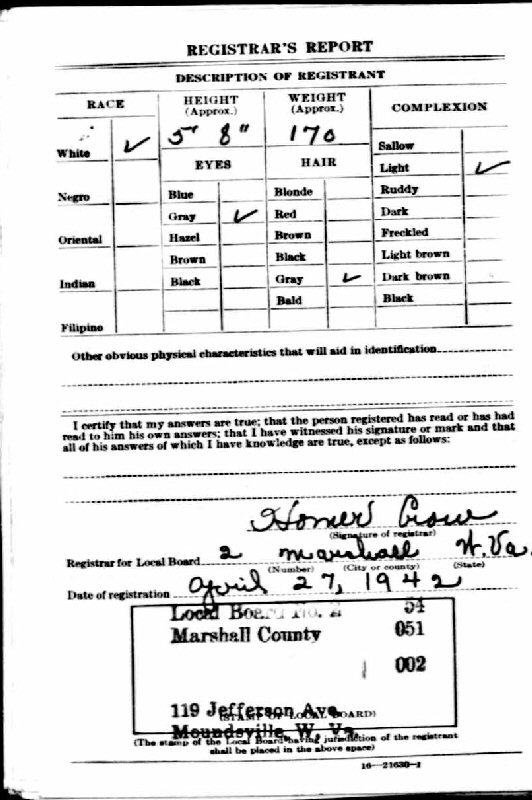 REGISTRAR'S REPORT
DESCRIPTION OF REGISTRANT
RACE
HEIGHT (Approx.)
WEIGHT (Approx.)
COMPLEXION
5" 8"
170
White ✓
EYES
HAIR
Sallow
Light ✓
Negro
Blue
Blonde
Ruddy
Gray ✓
Red
Dark
Oriental
Hazel
Brown
Freckled
Brown
Black
Light brown
Indian
Black
Gray ✓
Dark brown
Bald
Black
Filipino
Other obvious physical characteristics that will aid in identification
I certify that my answers are true; that the person registered has read or has had
read to him his own answers; that I have witnessed his signature or mark and that
all of his answers of which I have knowledge are true, except as follows:
Homer Crow
(Signature of registrar)
Registrar for Local Board 2 Marshall W. Va.
(Number) (City or county) (State)
Date of registration April 27, 1942
Local Board No. 2 54
Marshall County 051
002
119 Jefferson Ave.
(STAMP OF LOCAL BOARD)
Moundsville, W. Va.
(The stamp of the Local Board having jurisdiction of the registrant
shall be placed in the above space)
16—21630-1